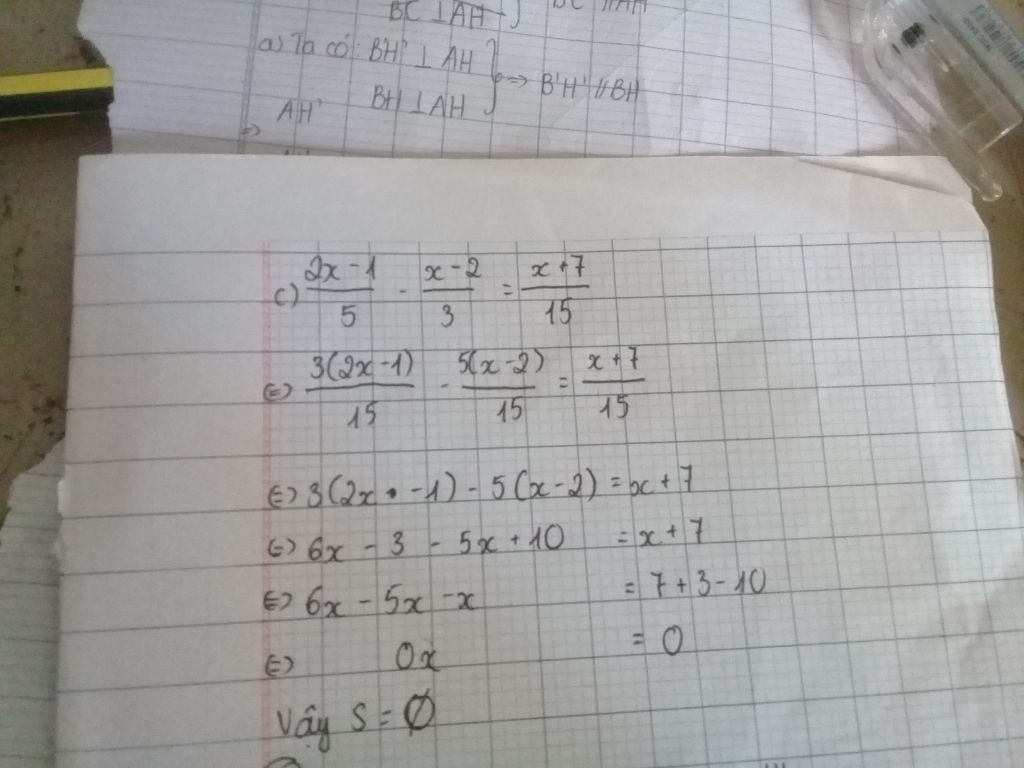 BC ⊥ AH
a) Ta có: BH' ⊥ AH
BH ⊥ AH } => B'H' // BH
AH'
=>
c) \frac{2x-1}{5} - \frac{x-2}{3} = \frac{x+7}{15}
<=> \frac{3(2x-1)}{15} - \frac{5(x-2)}{15} = \frac{x+7}{15}
<=> 3(2x - 1) - 5(x-2) = x+7
<=> 6x - 3 - 5x + 10 = x+7
<=> 6x - 5x - x = 7+3-10
<=> 0x = 0
Vậy S = ∅